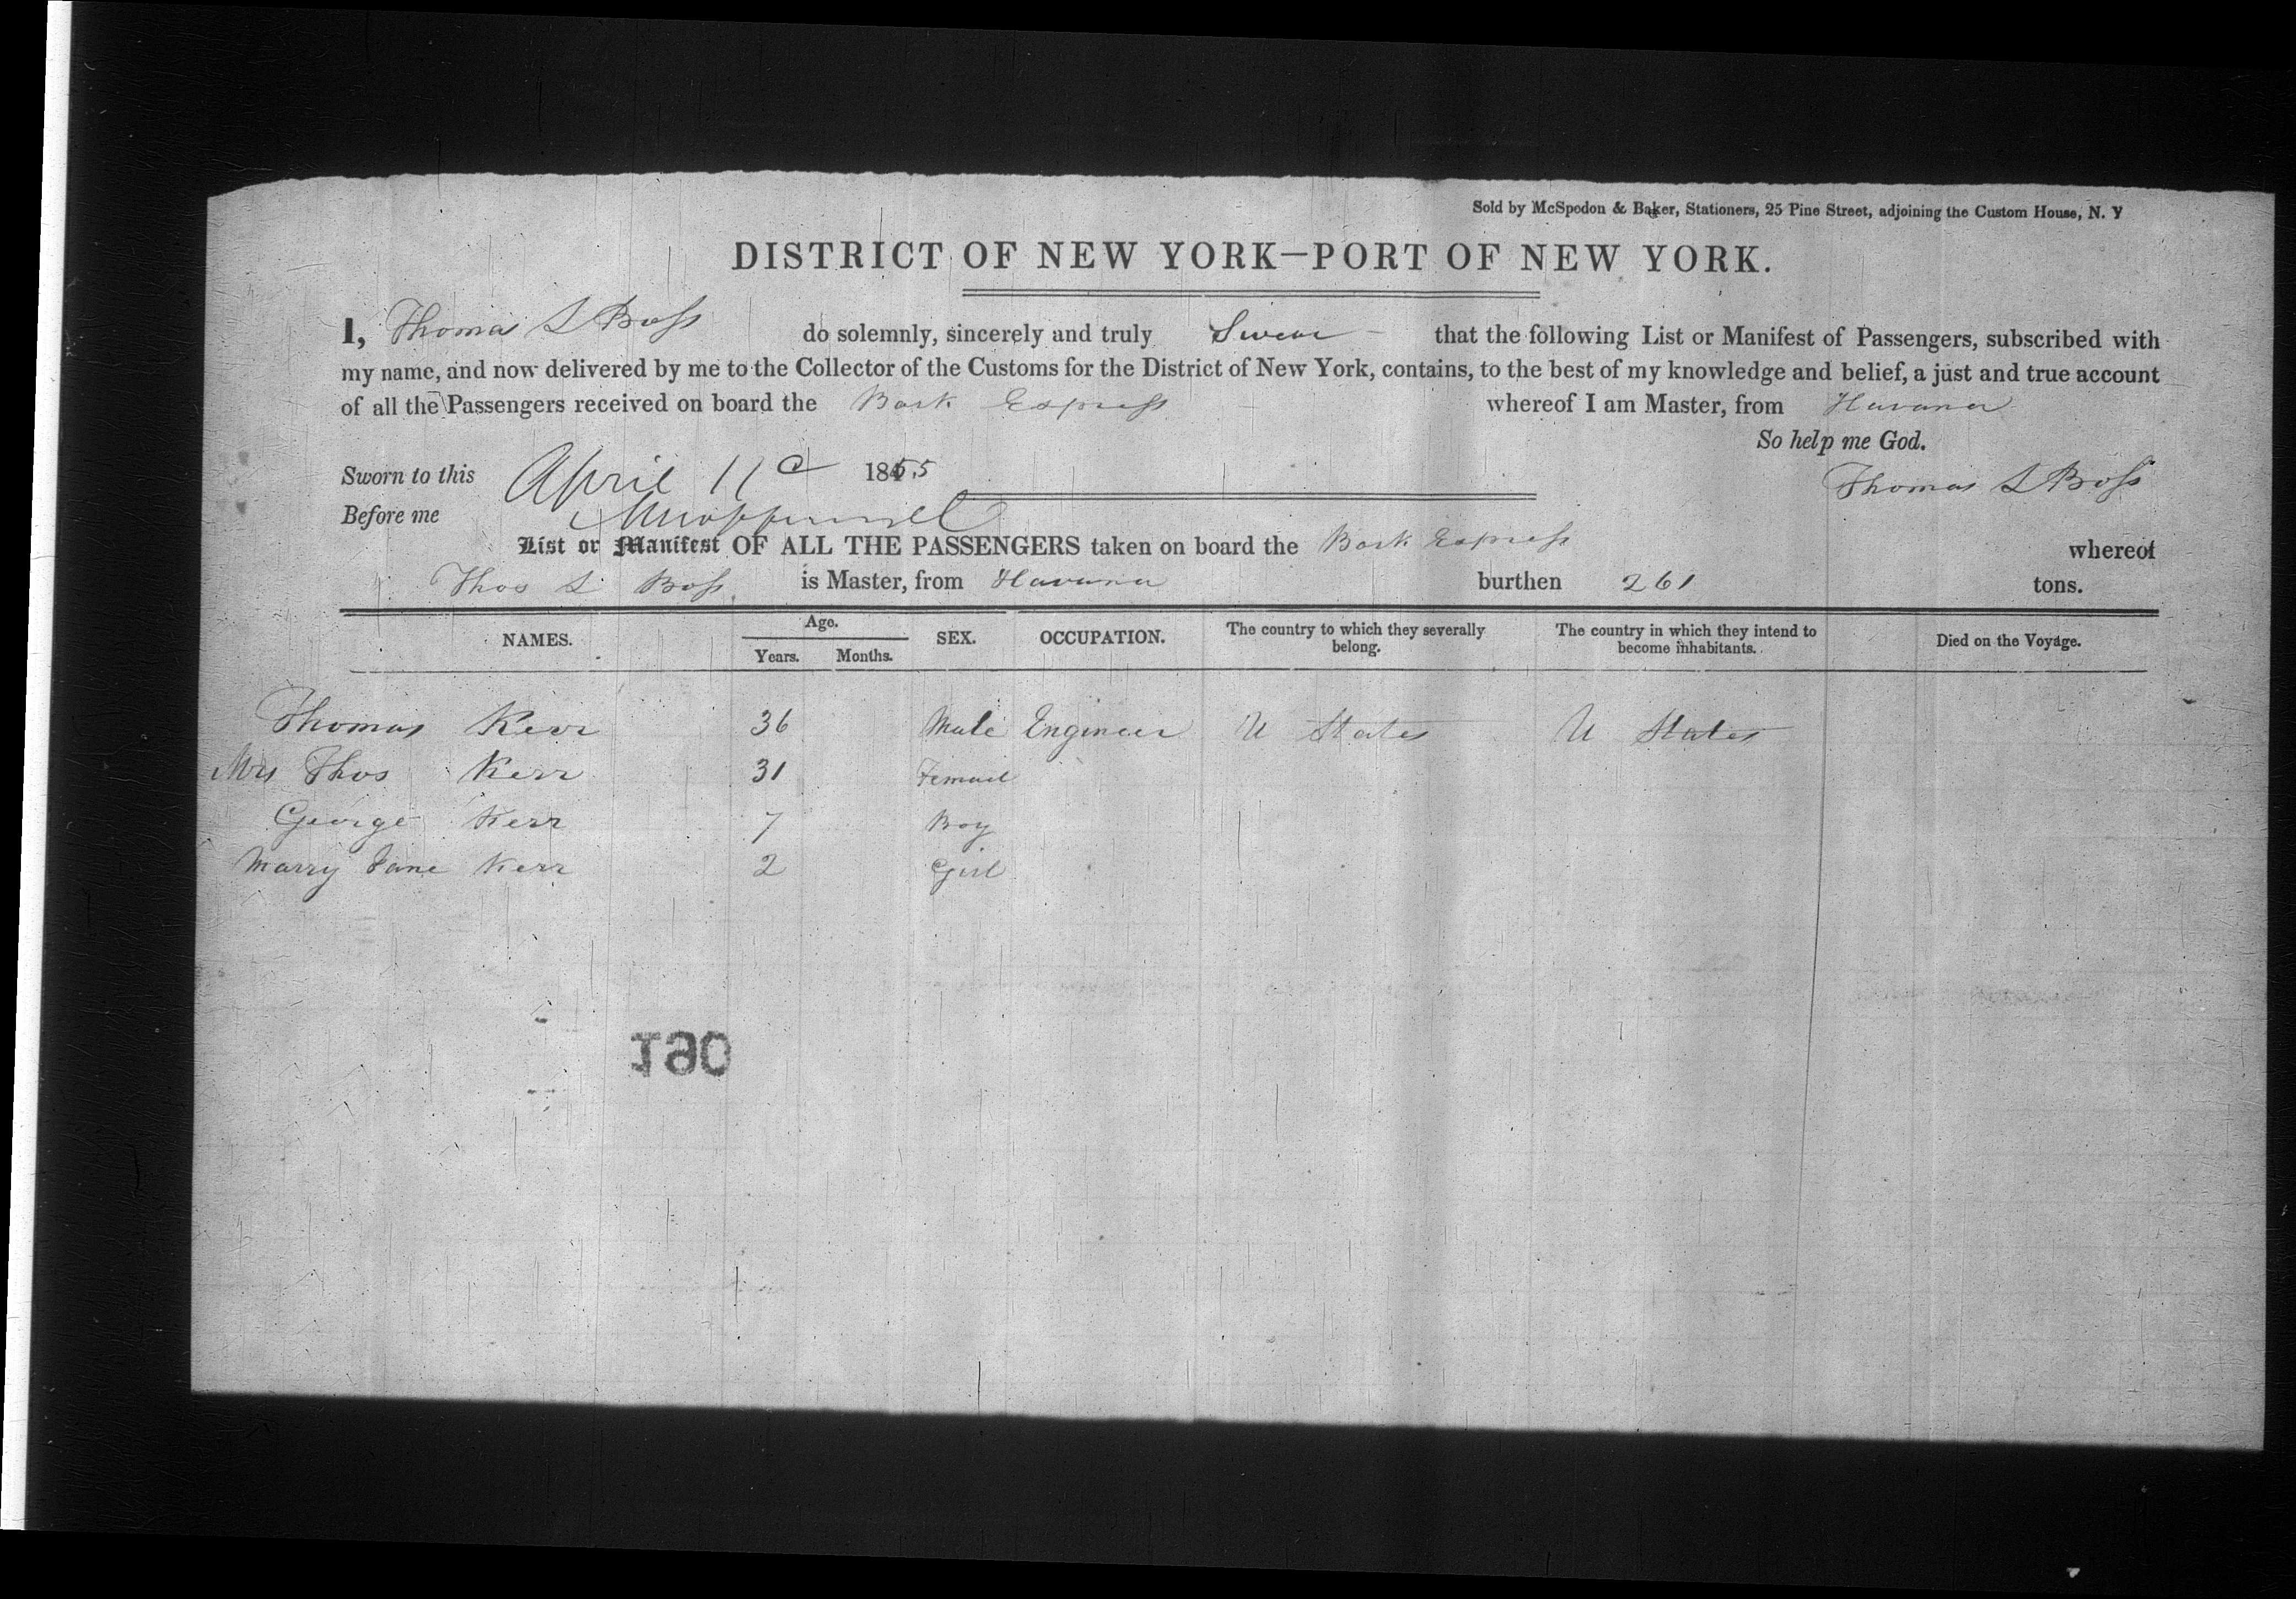 Sold by McSpedon & Baker, Stationers, 25 Pine Street, adjoining the Custom House, N. Y
DISTRICT OF NEW YORK—PORT OF NEW YORK.
I, Thomas L Boss do solemnly, sincerely and truly Swear that the following List or Manifest of Passengers, subscribed with
my name, and now delivered by me to the Collector of the Customs for the District of New York, contains, to the best of my knowledge and belief, a just and true account
of all the Passengers received on board the Bark Express whereof I am Master, from Havana
So help me God.
Sworn to this April 11 1855 Thomas L Boss
Before me
List or Manifest OF ALL THE PASSENGERS taken on board the Bark Express whereof
Thos L Boss is Master, from Havana burthen 261 tons.
NAMES. Age. Years. Months. SEX. OCCUPATION. The country to which they severally belong. The country in which they intend to become inhabitants. Died on the Voyage.
Thomas Kerr 36 Male Engineer U States U States
Mrs Thos Kerr 31 Femail
George Kerr 7 Boy
Marry Jane Kerr 2 Girl
190